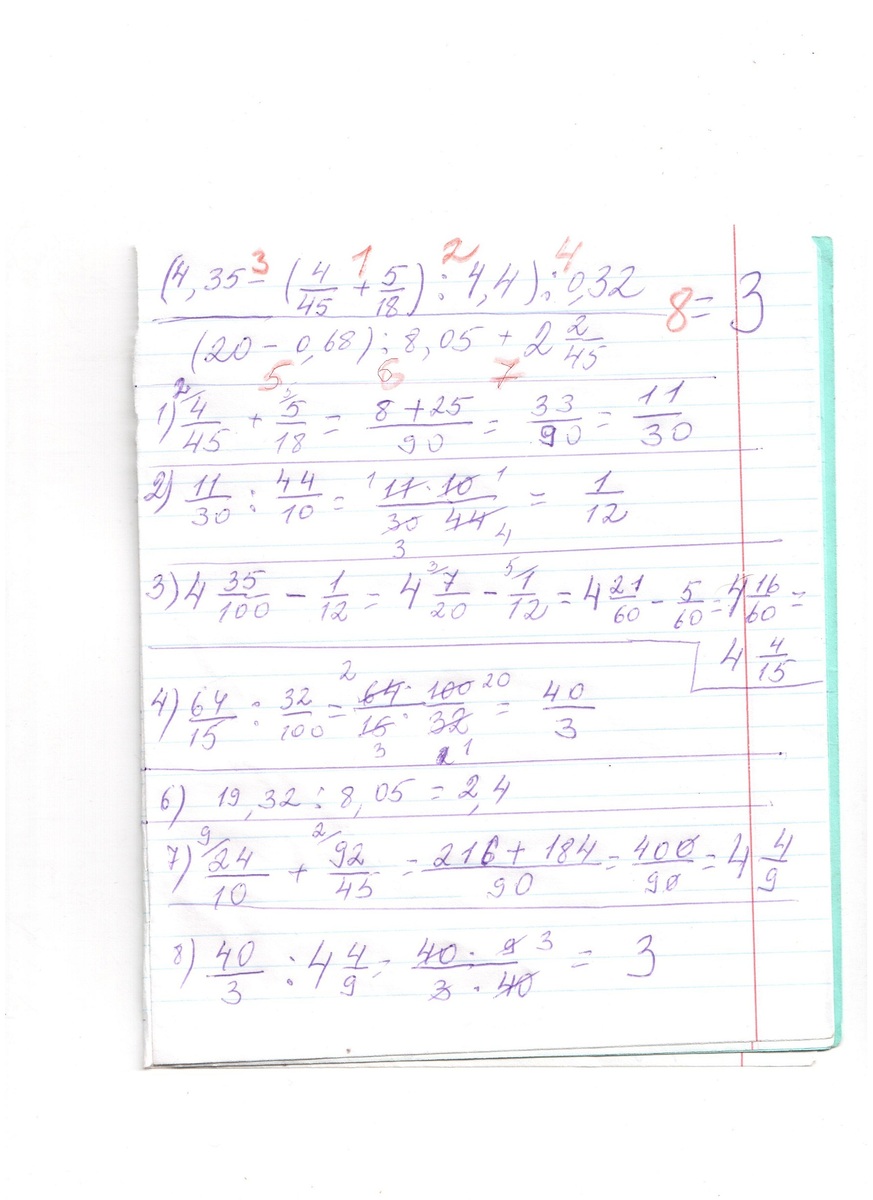 3 1 2 4
(4,35 - (4/45 + 5/18) : 4,4) : 0,32
(20 - 0,68) : 8,05 + 2 2/45
8 = 3
5 6 7
1) 2/ 4/45 + 5/ 5/18 = (8 + 25)/90 = 33/90 = 11/30
2) 11/30 : 44/10 = 1 (11 · 10)/(30 44) 1 3 4 = 1/12
3) 4 35/100 - 1/12 = 4 3/ 7/20 - 5/ 1/12 = 4 21/60 - 5/60 = 4 16/60 =
4 4/15
4) 64/15 : 32/100 = 2 64/15 · 100/32 20 3 1 = 40/3
6) 19,32 : 8,05 = 2,4
7) 9/ 24/10 + 2/ 92/45 = (216 + 184)/90 = 400/90 = 4 4/9
8) 40/3 : 4 4/9 = (40 · 9)/(3 · 40) 3 = 3